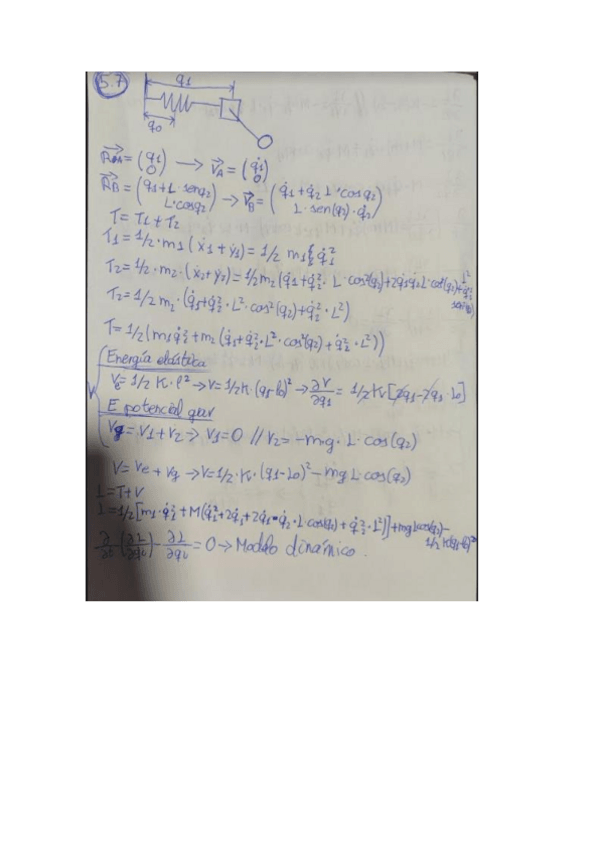 5.7
q1
q0
RA = (q1 0) → VA = (q̇1 0)
RB = (q1+L·senq2 L·cosq2) → VB = (q̇1+q̇2 L·cosq2 L·sen(q2)·q̇2)
T = T1 + T2
T1 = 1/2·m1 (ẋ1+ẏ1) = 1/2 m1 q̇1²
T2 = 1/2·m2·(ẋ2+ẏ2) = 1/2 m2 (q̇1+q̇2²·L·cos²(q2)+2q̇1q̇2L·cos(q2)+q̇2² L² sen(q2)
T2 = 1/2 m2·(q̇1+q̇2²·L²·cos²(q2)+q̇2²·L²)
T = 1/2 (m1q̇1²+m2 (q̇1+q̇2²·L²·cos²(q2)+q̇2²·L²))
Energía elástica
Ve = 1/2 K·l² → V = 1/2K·(q1-l0)² → ∂V/∂q1 = 1/2 K·[2q1-2q1·l0]
E potencial gav
Vg = V1+V2 → V1=0 // V2 = -mg·L·cos(q2)
V
V = Ve + Vg → V = 1/2·K·(q1-L0)² - mgL·cos(q2)
L = T+V
L = 1/2[m1·q̇1²+M(q̇1²+2q̇1+2q̇1·q̇2·L·cos(q2)+q̇2²·L²)]+mgLcos(q2)-
1/2 K(q1-l0)²
∂/∂t (∂L/∂q̇i) - ∂L/∂qi = 0 → Modelo dinámico.